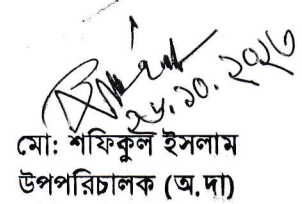 ২৮.১০.২০২৩
মো: শফিকুল ইসলাম
উপপরিচালক (অ.দা)